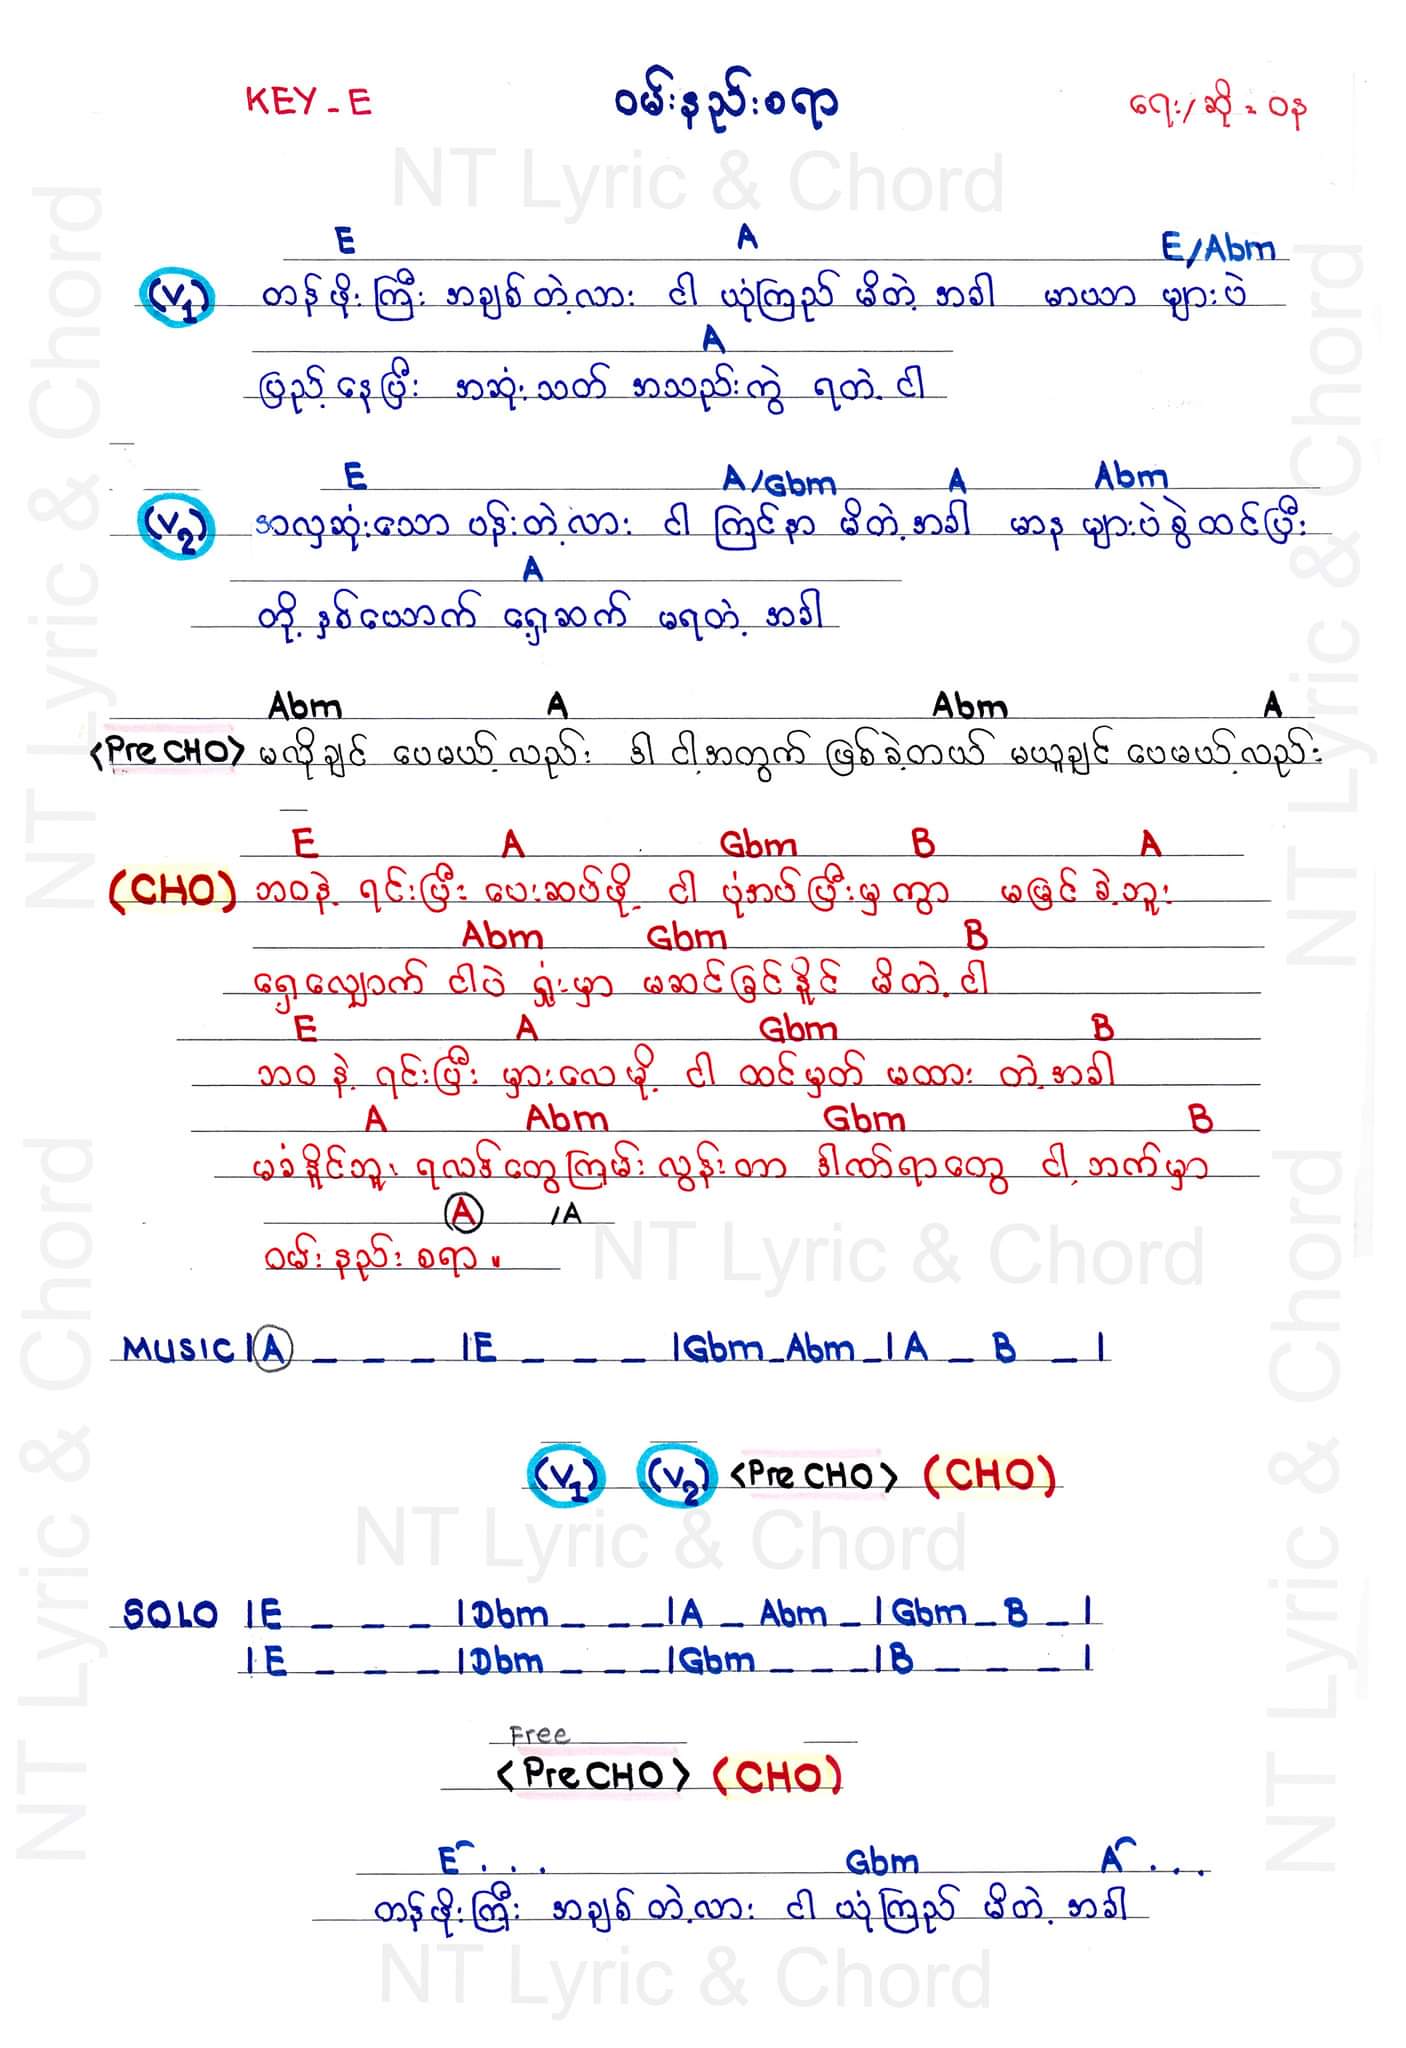 KEY - E ဝမ်းနည်းစရာ ရေး/ဆို = ဝန
NT Lyric & Chord
E A E/Abm
(V1) တန်ဖိုးကြီး အချစ်တဲ့လား ငါ ယုံကြည် မိတဲ့ အခါ မာယာ များပဲ
A
ပြည့်နေပြီး အဆုံးသတ် အသည်းကွဲ ရတဲ့ ငါ
E A/Gbm A Abm
(V2) အလှဆုံးသော ပန်းတဲ့လား ငါ ကြင်နာ မိတဲ့အခါ မာန များပဲစွဲထင်ပြီး
A
တို့ နှစ်ယောက် ရှေ့ဆက် မရတဲ့ အခါ
Abm A Abm A
<Pre CHO> မလိုချင် ပေမယ့်လည်း ဒါ ငါ့အတွက် ဖြစ်ခဲ့တယ် မယူချင် ပေမယ့်လည်း
E A Gbm B A
(CHO) ဘဝနဲ့ ရင်းပြီး ပေးဆပ်ဖို့ ငါ ပုံအပ်ပြီးမှ ကွာ မမြင်ခဲ့ဘူး
Abm Gbm B
ရှေ့လျှောက် ငါပဲ ရှုံးမှာ မဆင်ခြင်နိုင် မိတဲ့ ငါ
E A Gbm B
ဘဝ နဲ့ ရင်းပြီး မှားလေမို့ ငါ ထင်မှတ် မထား တဲ့အခါ
A Abm Gbm B
မခံနိုင်ဘူး ရလဒ်တွေကြမ်းလွန်းတာ ဒါဏ်ရာတွေ ငါ့ဘက်မှာ
A /A
ဝမ်းနည်းစရာ ။
NT Lyric & Chord
MUSIC | A _ _ _ | E _ _ _ | Gbm _ Abm _ | A _ B _ |
(V1) (V2) <Pre CHO> (CHO)
NT Lyric & Chord
SOLO | E _ _ _ | Dbm _ _ _ | A _ Abm _ | Gbm _ B _ |
| E _ _ _ | Dbm _ _ _ | Gbm _ _ _ | B _ _ _ |
Free
<Pre CHO> (CHO)
E . . . Gbm A . . .
တန်ဖိုးကြီး အချစ်တဲ့လား ငါ ယုံကြည် မိတဲ့ အခါ
NT Lyric & Chord
NT Lyric & Chord
NT Lyric & Chord
NT Lyric & Chord
NT Lyric & Chord